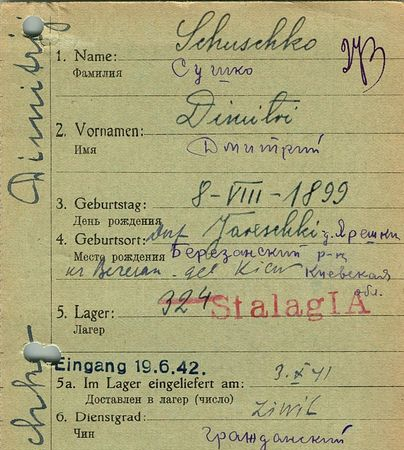 Schuschko
1. Name:
Фамилия
Сушко
Dimitri
2. Vornamen:
Имя
Дмитрий
3. Geburtstag: 8-VIII-1899
День рождения
4. Geburtsort: Dorf Jareschki
Место рождения Березанский р-н
Kiew Киевская
обл.
5. Lager: 324 Stalag IA
Лагер
Eingang 19.6.42.
5a. Im Lager eingeliefert am: 3.X 41
Доставлен в лагер (число)
6. Dienstgrad: Zivil
Чин Гражданский
Dimitrij